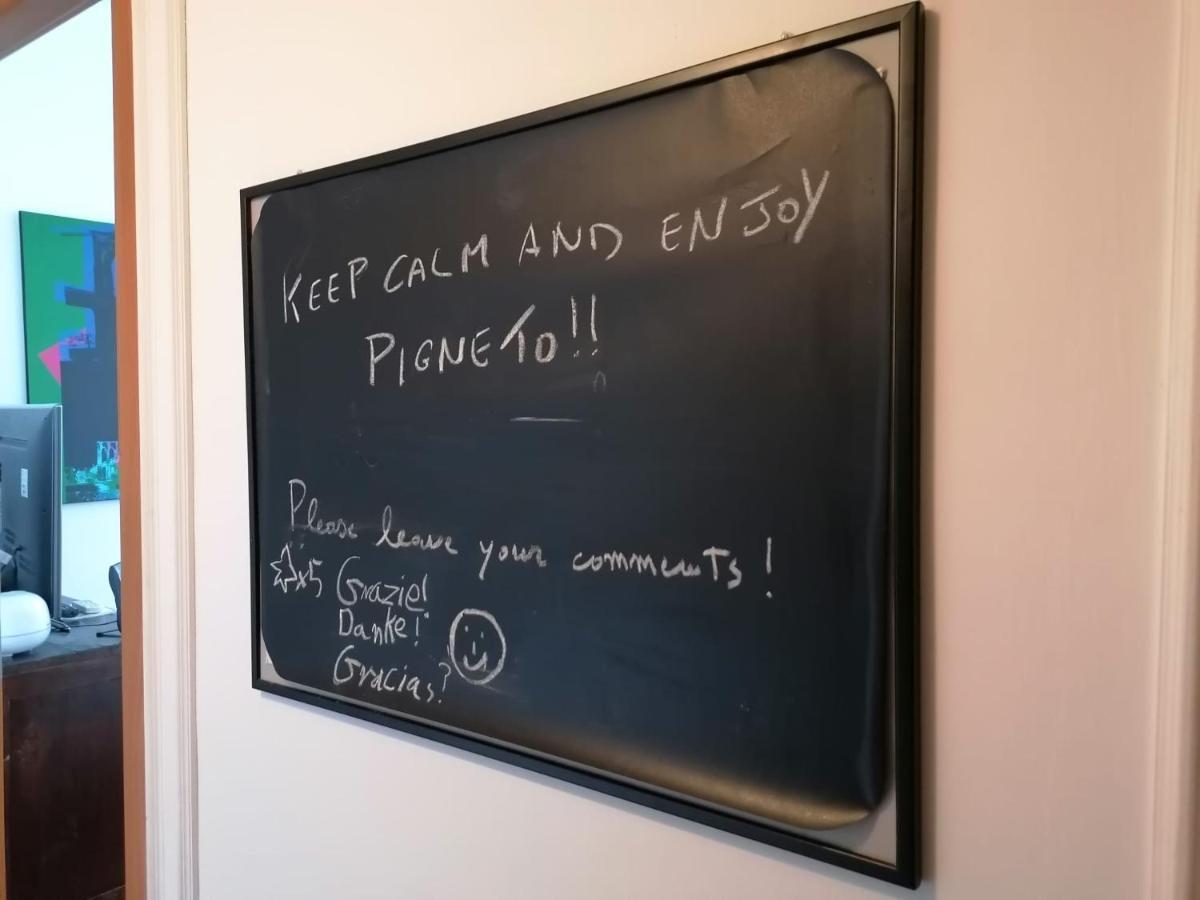 KEEP CALM AND ENJOY
PIGNETO!!
Please leave your comments!
x5 Grazie!
Danke!
Gracias?